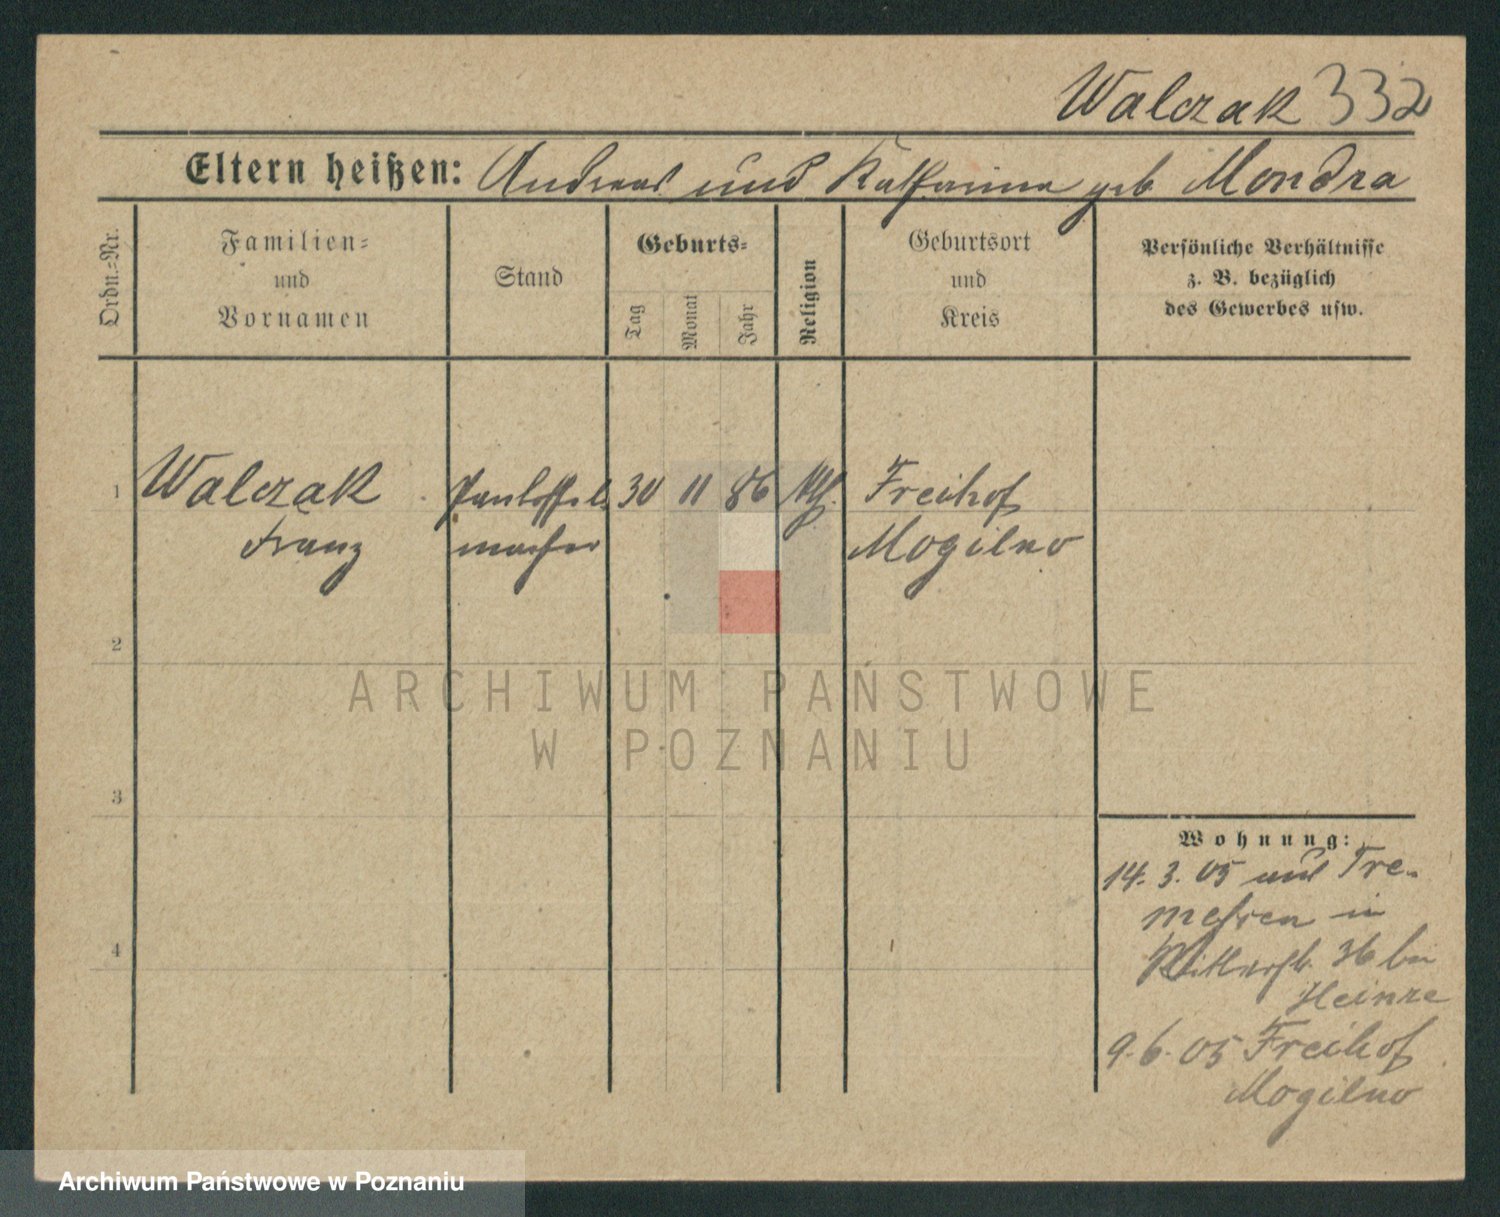 Walczak 332
Eltern heißen: Andreas und Katharina geb Mondra
Ordn.=Nr.
Familien=
und
Vornamen
Stand
Geburts=
Tag
Monat
Jahr
Religion
Geburtsort
und
Kreis
Persönliche Verhältnisse
z. B. bezüglich
des Gewerbes usw.
1 Walczak Pantoffel 30 11 86 kth. Freihof
Franz macher Mogilno
2
ARCHIWUM PAŃSTWOWE
W POZNANIU
3
4
Wohnung:
14. 3. 05 aus Tre-
messen in
36 bei
Heinze
9. 6. 05 Freihof
Mogilno
Archiwum Państwowe w Poznaniu